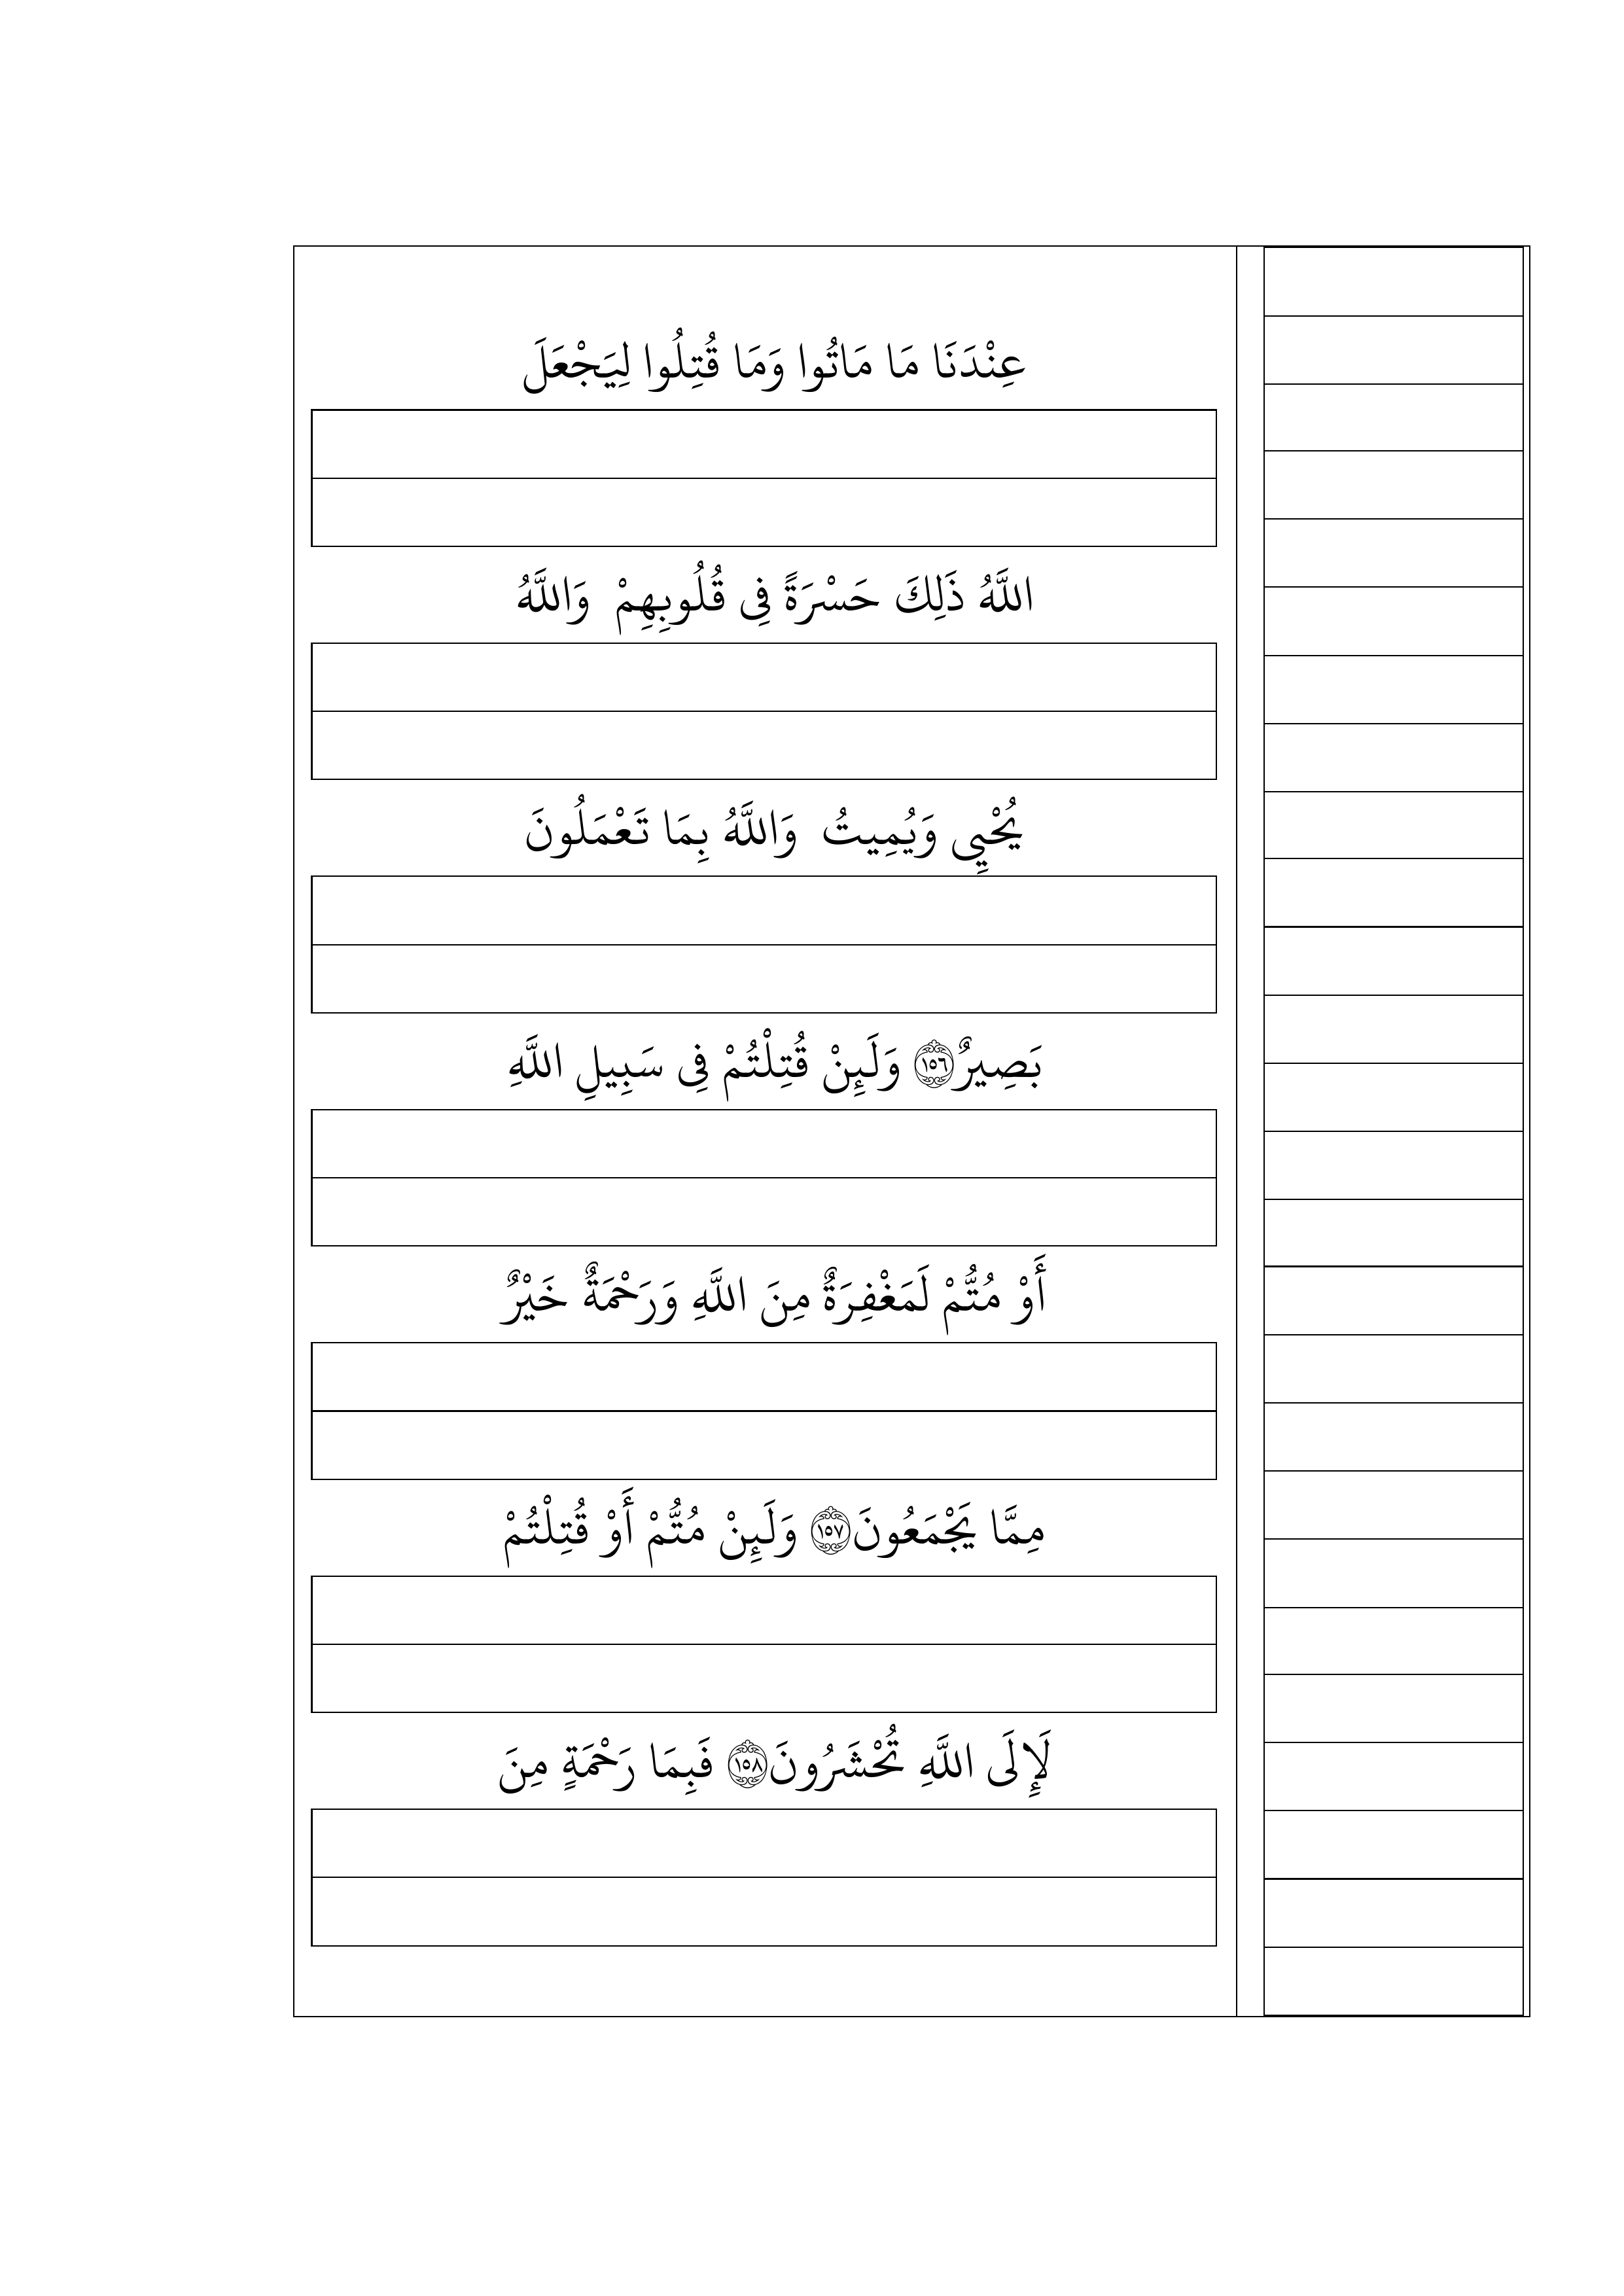 عِنْدَنَا مَا مَاتُوا وَمَا قُتِلُوا لِيَجْعَلَ
اللَّهُ ذَلِكَ حَسْرَةً فِى قُلُوبِهِمْ وَاللَّهُ
يُحْيِى وَيُمِيتُ وَاللَّهُ بِمَا تَعْمَلُونَ
بَصِيرٌ ١٥٦ وَلَئِنْ قُتِلْتُمْ فِى سَبِيلِ اللَّهِ
أَوْ مُتُّمْ لَمَغْفِرَةٌ مِنَ اللَّهِ وَرَحْمَةٌ خَيْرٌ
مِمَّا يَجْمَعُونَ ١٥٧ وَلَئِنْ مُتُّمْ أَوْ قُتِلْتُمْ
لَإِلَى اللَّهِ تُحْشَرُونَ ١٥٨ فَبِمَا رَحْمَةٍ مِنَ